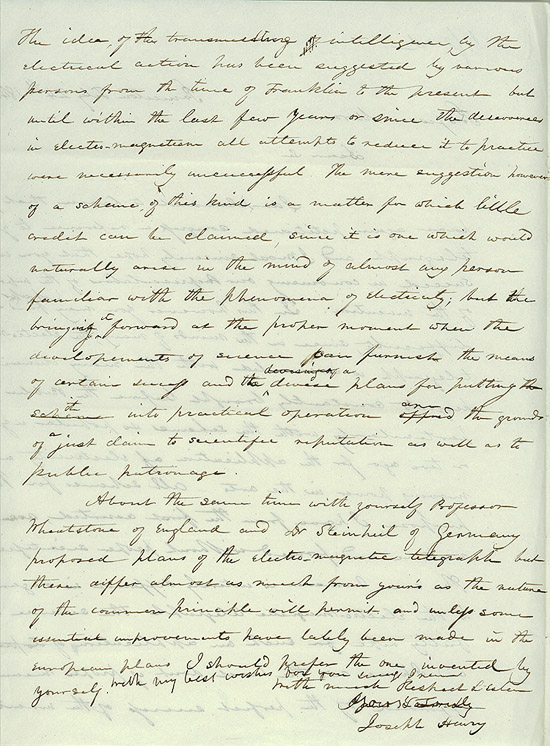 The idea of the transmitting of intelligence by the
electrical action has been suggested by various
persons from the time of Franklin to the present but
until within the last few years or since the discoveries
in electro-magnetism all attempts to reduce it to practice
were necessarily unsuccessful. The mere suggestion however
of a scheme of this kind, is a matter for which little
credit can be claimed, since it is one which would
naturally arise in the mind of almost any person
familiar with the phenomena of electricity; but the
bringing it forward at the proper moment when the
developements of science can furnish the means
of certain success and the devising of a devise plans for putting the
scheme it into practical operation are afford the grounds
of a just claim to scientific reputation as well as to
public patronage.
About the same time with yourself Professor
Wheatstone of England and Dr Steinheil of Germany
proposed plans of the electro-magnetic telegraph but
these differ almost as much from yours as the nature
of the common principle will permit and unless some
essential improvements have lately been made in the
european plans I should prefer the one invented by
yourself. With my best wishes for your success I remain
with much Respect & Esteem
Yours
Joseph Henry